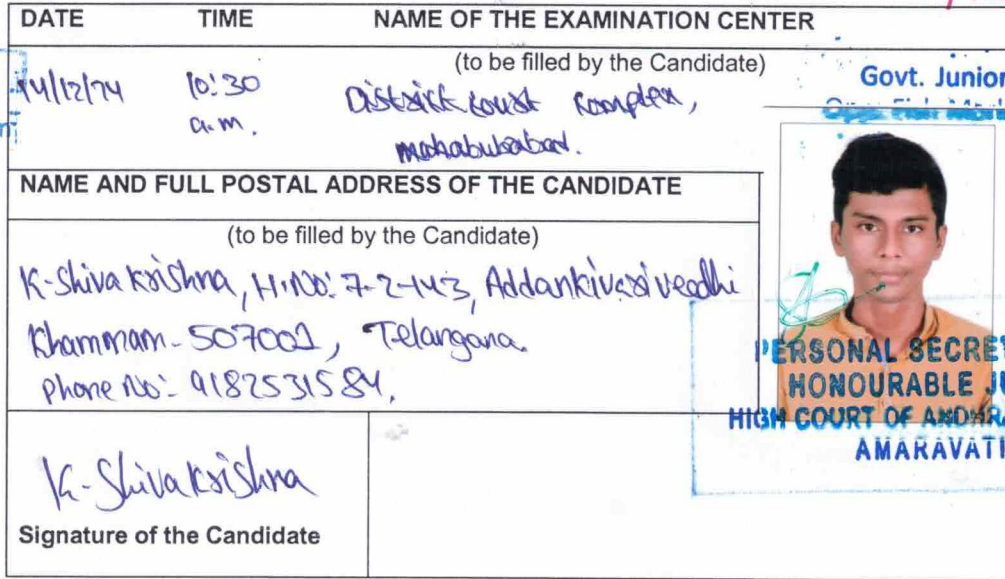 DATE TIME NAME OF THE EXAMINATION CENTER
(to be filled by the Candidate)
14/12/74 10:30 a.m. District court complex, mahabubabad.
Govt. Junior
NAME AND FULL POSTAL ADDRESS OF THE CANDIDATE
(to be filled by the Candidate)
K-Shiva Krishna, H.No: 7-2-143, Addankivari veedhi
Khammam - 507001, Telangana.
Phone No:- 9182531584.
PERSONAL SECRET
HONOURABLE JU
HIGH COURT OF ANDHRA
AMARAVATI
K-Shiva Krishna
Signature of the Candidate